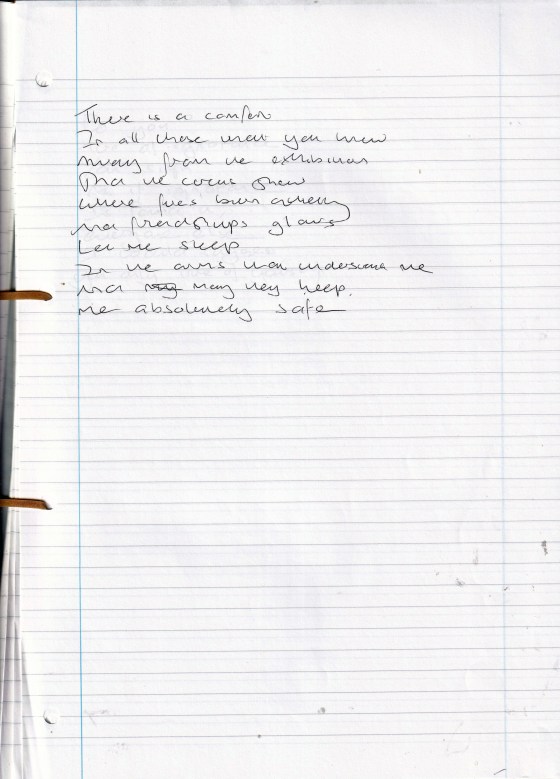 There is a comfort
In all those that you know
Away from the exhibition
And the circus show
where fires burn
And friendships glows
Let me sleep
In the arms that understand me
And may they keep
me absolutely safe